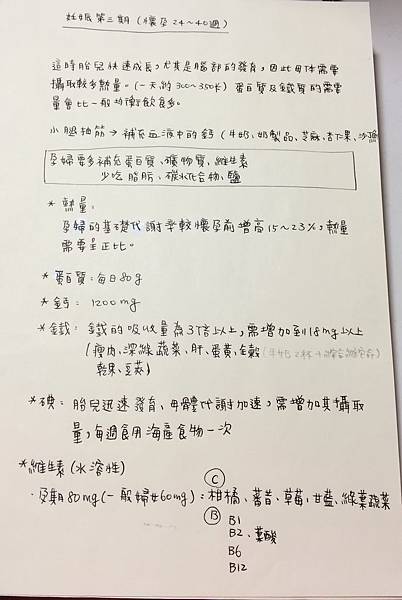 妊娠第三期(懷孕24~40週)
這時胎兒快速成長,尤其是腦部的發育,因此母体需要
攝取較多熱量。(一天約300~350k)蛋白質及鐵質的需要
量會比一般均衡飲食多。
小腿抽筋→補充血液中的鈣(牛奶、奶製品、芝麻、杏仁果、
孕婦要多補充蛋白質、礦物質、維生素
少吃脂肪、碳水化合物、鹽
*熱量:
孕婦的基礎代謝率較懷孕前增高15~23%,熱量
需要呈正比。
*蛋白質:每日80g
*鈣:1200mg
*鐵:鐵的吸收量為3倍以上,需增加到18mg以上
(瘦肉、深綠蔬菜、肝、蛋黃、全穀
乾果、豆莢)
*碘:胎兒迅速發育、母體代謝加速,需增加其攝取
量,每週食用海產食物一次
*維生素(水溶性)
C
·孕期80mg(一般婦女60mg):柑橘、蕃茄、草莓、甘藍、綠葉蔬菜
B
B1
B2、葉酸
B6
B12